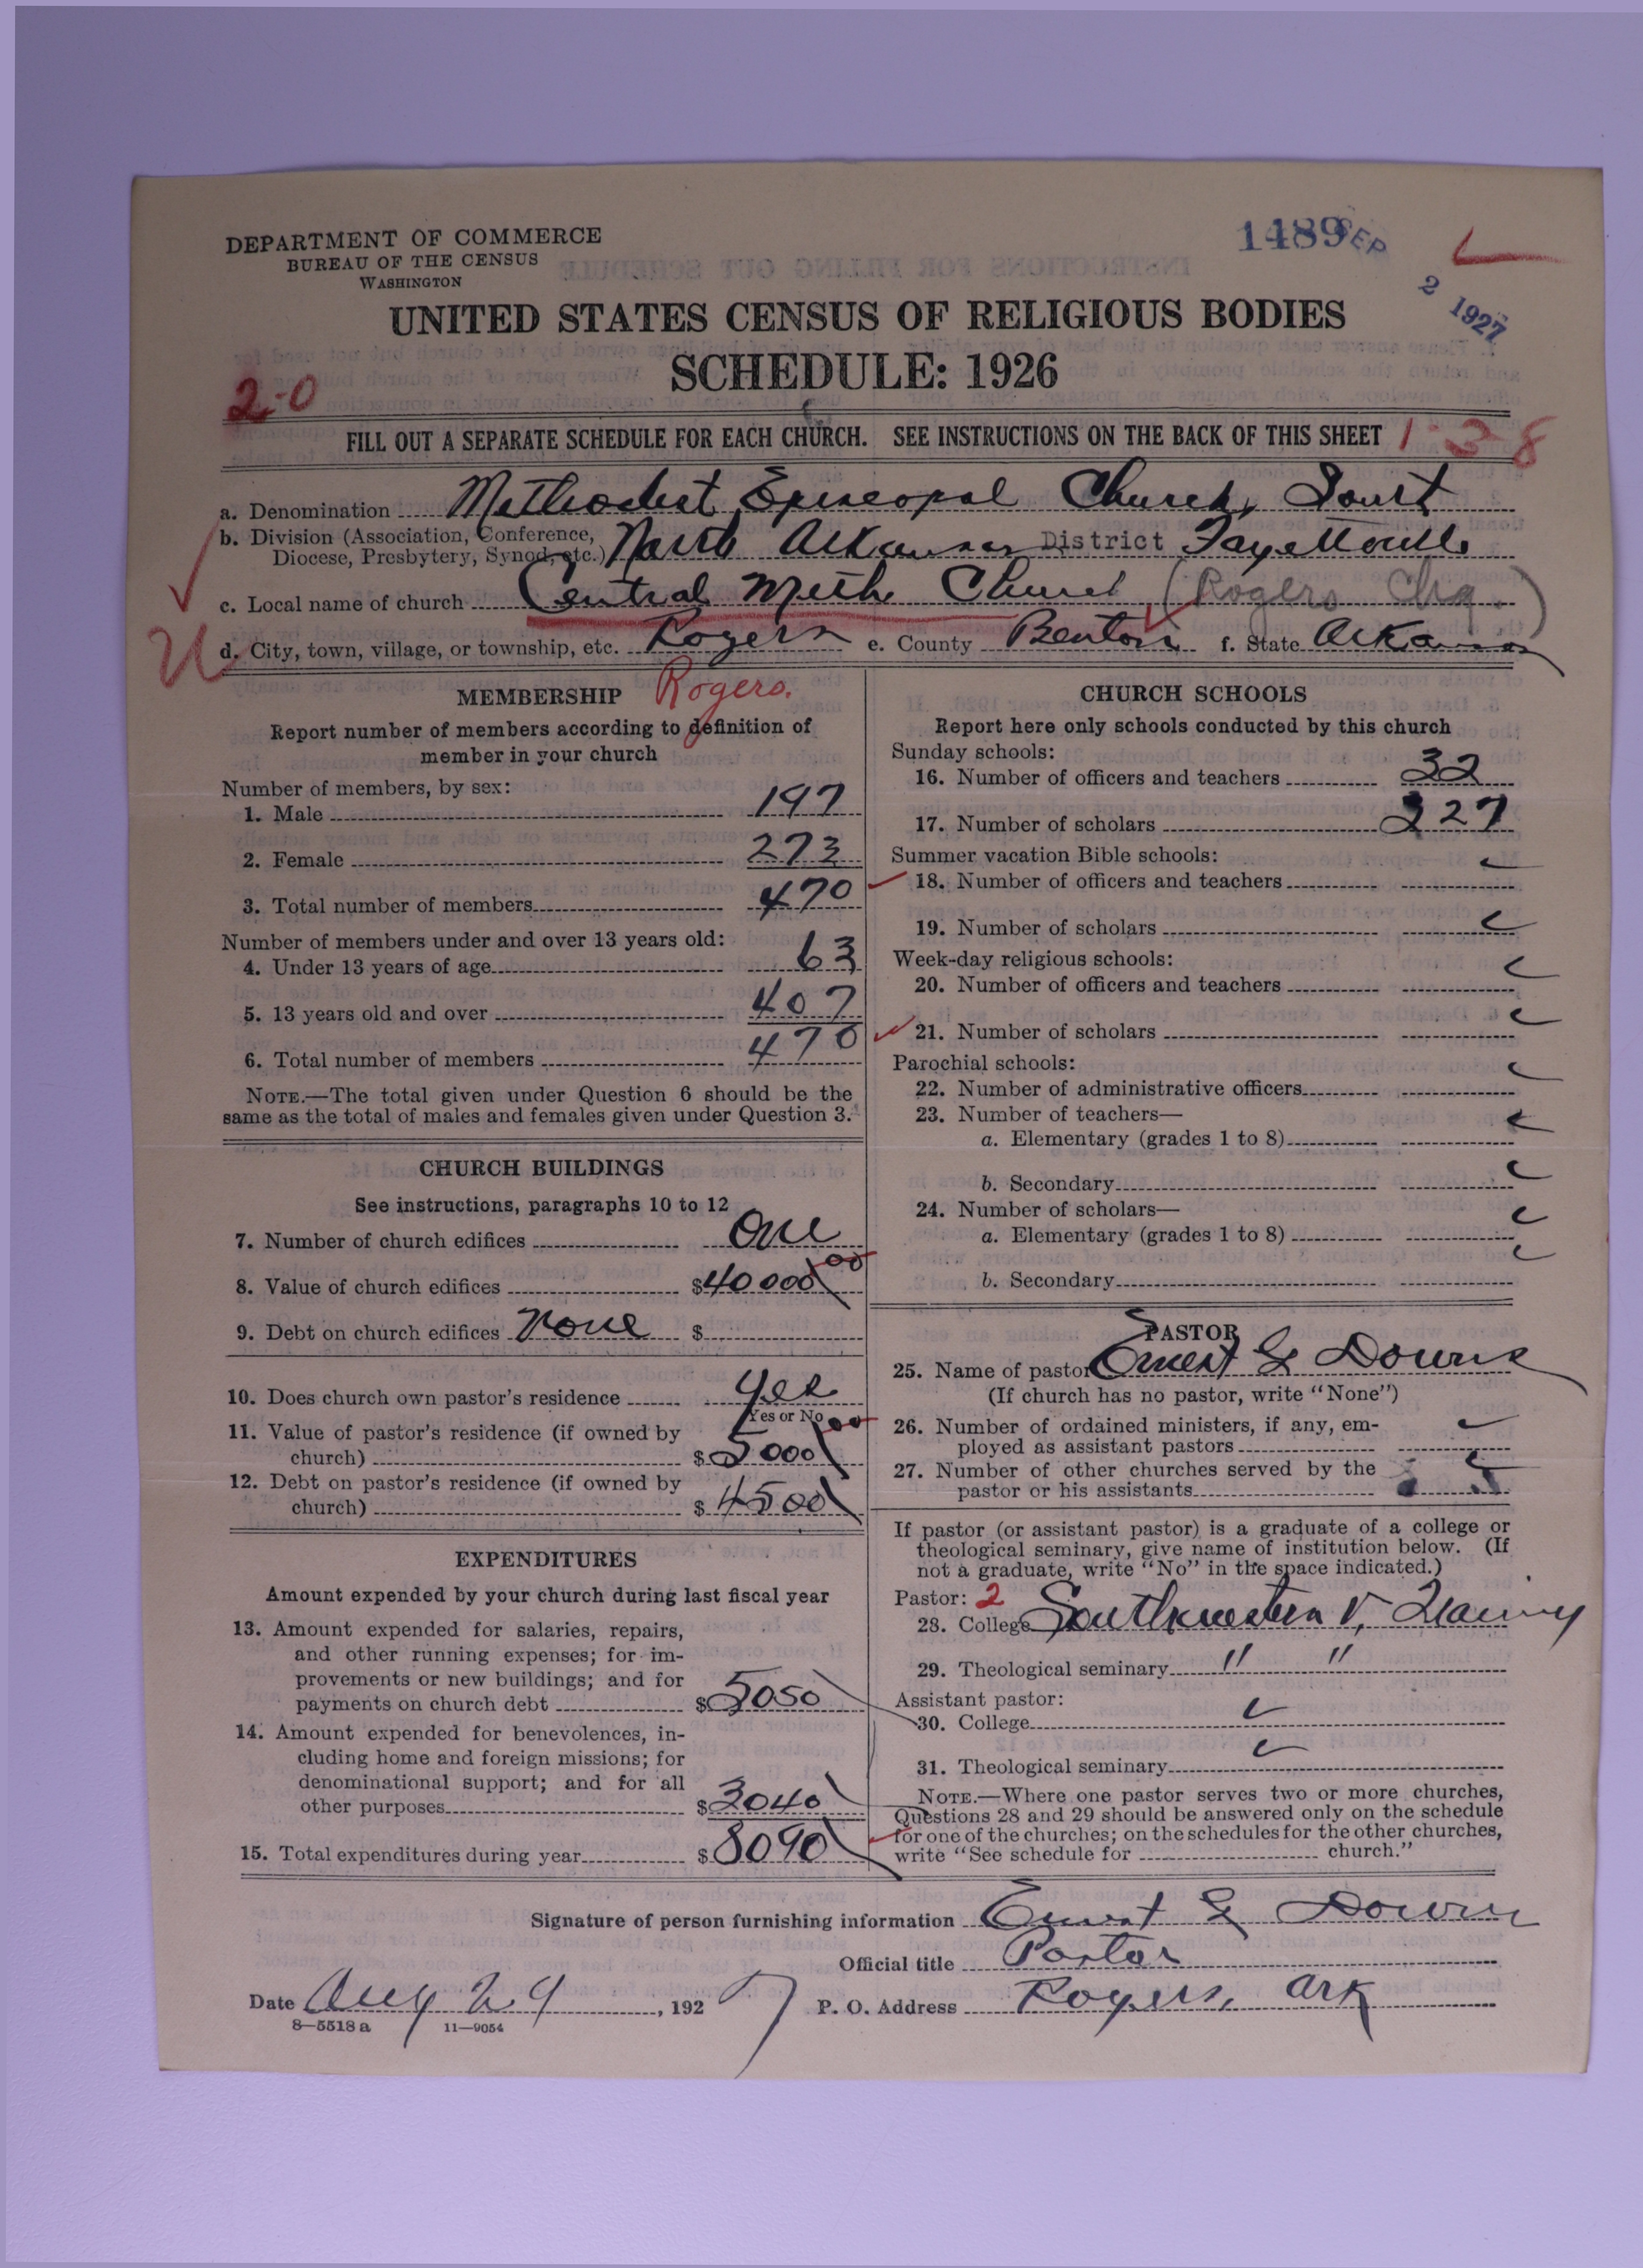 DEPARTMENT OF COMMERCE
BUREAU OF THE CENSUS
WASHINGTON
1489 SEP 2 1927
UNITED STATES CENSUS OF RELIGIOUS BODIES
SCHEDULE: 1926
2-0
FILL OUT A SEPARATE SCHEDULE FOR EACH CHURCH. SEE INSTRUCTIONS ON THE BACK OF THIS SHEET 1-3-8
a. Denomination Methodist Episcopal Church, South
b. Division (Association, Conference, Diocese, Presbytery, Synod, etc.) North Arkansas District Fayetteville
c. Local name of church Central Meth Church (Rogers Chg.)
d. City, town, village, or township, etc. Rogers e. County Benton f. State Arkansas
MEMBERSHIP Rogers.
Report number of members according to definition of
member in your church
Number of members, by sex:
1. Male 197
2. Female 273
3. Total number of members 470
Number of members under and over 13 years old:
4. Under 13 years of age 63
5. 13 years old and over 407
6. Total number of members 470
NOTE.—The total given under Question 6 should be the
same as the total of males and females given under Question 3.
CHURCH BUILDINGS
See instructions, paragraphs 10 to 12
7. Number of church edifices One
8. Value of church edifices $40000 00
9. Debt on church edifices None $
10. Does church own pastor's residence Yes
Yes or No
11. Value of pastor's residence (if owned by
church) $5000 00
12. Debt on pastor's residence (if owned by
church) $4500
EXPENDITURES
Amount expended by your church during last fiscal year
13. Amount expended for salaries, repairs,
and other running expenses; for im-
provements or new buildings; and for
payments on church debt $5050
14. Amount expended for benevolences, in-
cluding home and foreign missions; for
denominational support; and for all
other purposes $3040
15. Total expenditures during year $8090
CHURCH SCHOOLS
Report here only schools conducted by this church
Sunday schools:
16. Number of officers and teachers 32
17. Number of scholars 327
Summer vacation Bible schools:
18. Number of officers and teachers
19. Number of scholars
Week-day religious schools:
20. Number of officers and teachers
21. Number of scholars
Parochial schools:
22. Number of administrative officers
23. Number of teachers—
a. Elementary (grades 1 to 8)
b. Secondary
24. Number of scholars—
a. Elementary (grades 1 to 8)
b. Secondary
PASTOR
25. Name of pastor Ernest G Downs
(If church has no pastor, write "None")
26. Number of ordained ministers, if any, em-
ployed as assistant pastors
27. Number of other churches served by the
pastor or his assistants
If pastor (or assistant pastor) is a graduate of a college or
theological seminary, give name of institution below. (If
not a graduate, write "No" in the space indicated.)
Pastor: 2
28. College Southwestern
29. Theological seminary " "
Assistant pastor:
30. College
31. Theological seminary
NOTE.—Where one pastor serves two or more churches,
Questions 28 and 29 should be answered only on the schedule
for one of the churches; on the schedules for the other churches,
write "See schedule for church."
Signature of person furnishing information Ernest G Downs
Official title Pastor
Date Aug 29, 1927 P. O. Address Rogers, Ark
8—5518 a 11—9054